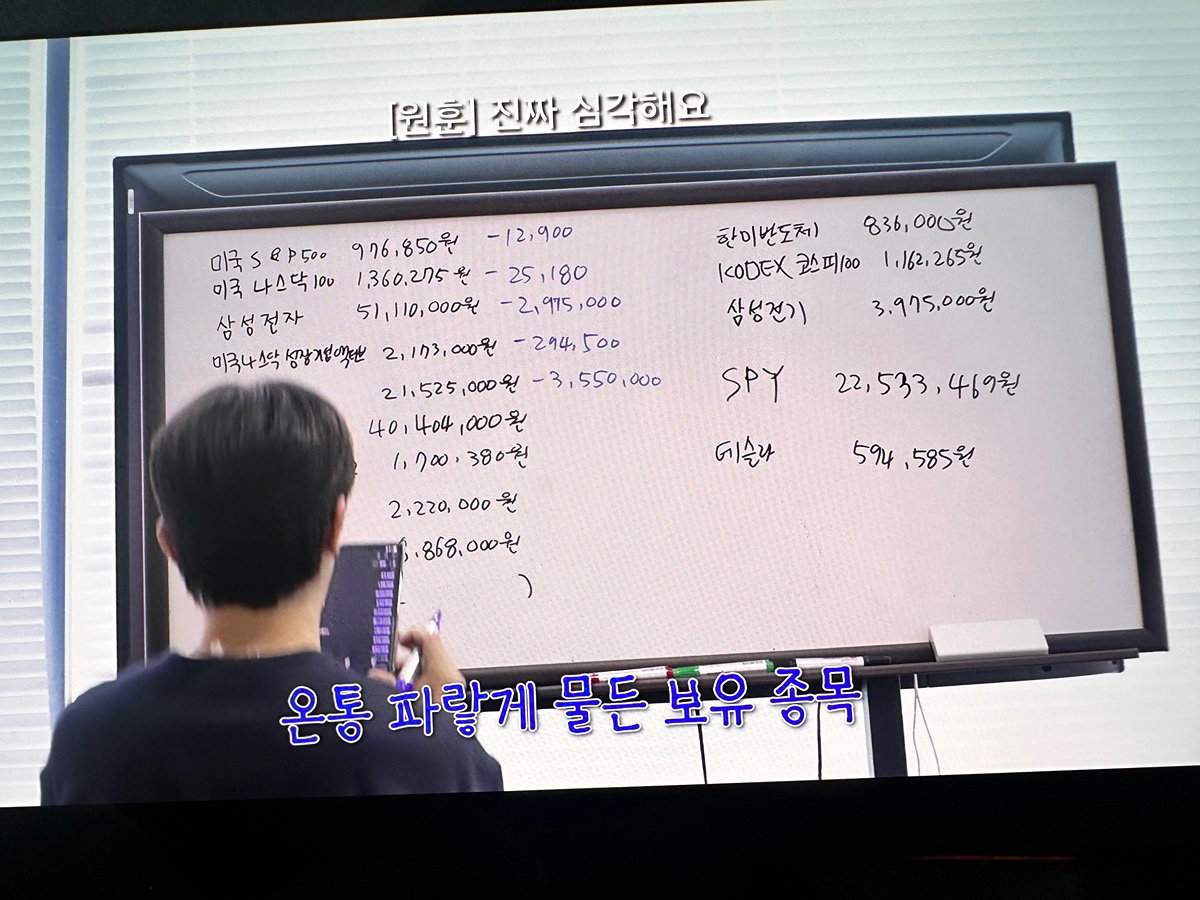 [원훈] 진짜 심각해요
미국 S&P500 976,850원 -12,900
미국 나스닥100 1,360,275원 -25,180
삼성전자 51,110,000원 -2,975,000
미국나스닥 2,173,000원 -294,500
21,525,000원 -3,550,000
40,404,000원
1,700,380원
2,220,000원
,868,000원
)
한미반도체 836,000원
KODEX 코스피100 1,162,265원
삼성전기 3,975,000원
SPY 22,533,469원
테슬라 594,585원
온통 파랗게 물든 보유 종목